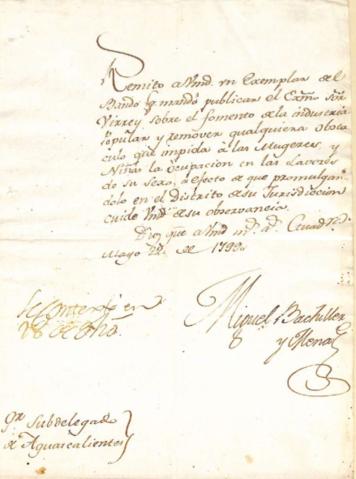 Remito a Vmd. un Exemplar de el
Bando q. mandó publicar el Exmo Sôr
Virrey, sobre el fomento de la industria
popular y remover qualquiera obsta
culo que impida à las Mugeres, y
Niñas la ocupacion en las Labores
de su Sexo, à efecto de que promulgan
dolo en el distrito de su Jurisdiccion
cuide Vmd. de su observancia.
Dios gue. a Vmd. ms. as.
Mayo de 1799.
Se contextó en
28 de dho.
Miguel Bachiller
y Mena
Sr. Subdelegado
de Aguascalientes